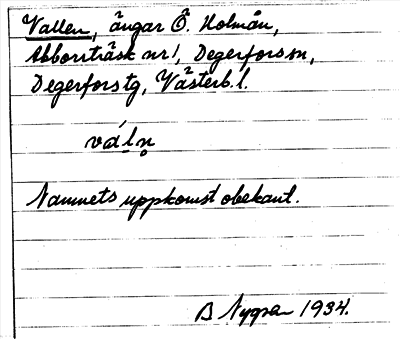 Vallen, ängar Ö. Holmån,
Abborrträsk nr 1, Degerfors sn,
Degerfors tg, Västerb. l.
Namnets uppkomst obekant.
1934.